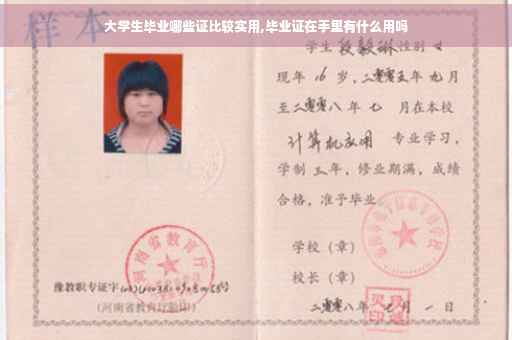 大学生毕业哪些证比较实用,毕业证在手里有什么用吗
样本
学生段毅琳性别女
现年16岁,二零零五年九月
至二零零八年七月在本校
计算机应用 专业学习,
学制三年,修业期满,成绩
合格,准予毕业
学校(章)
校长(章)
二零零八年 月一日
河南省教育厅
豫教职专证字
(河南省教育厅验印)